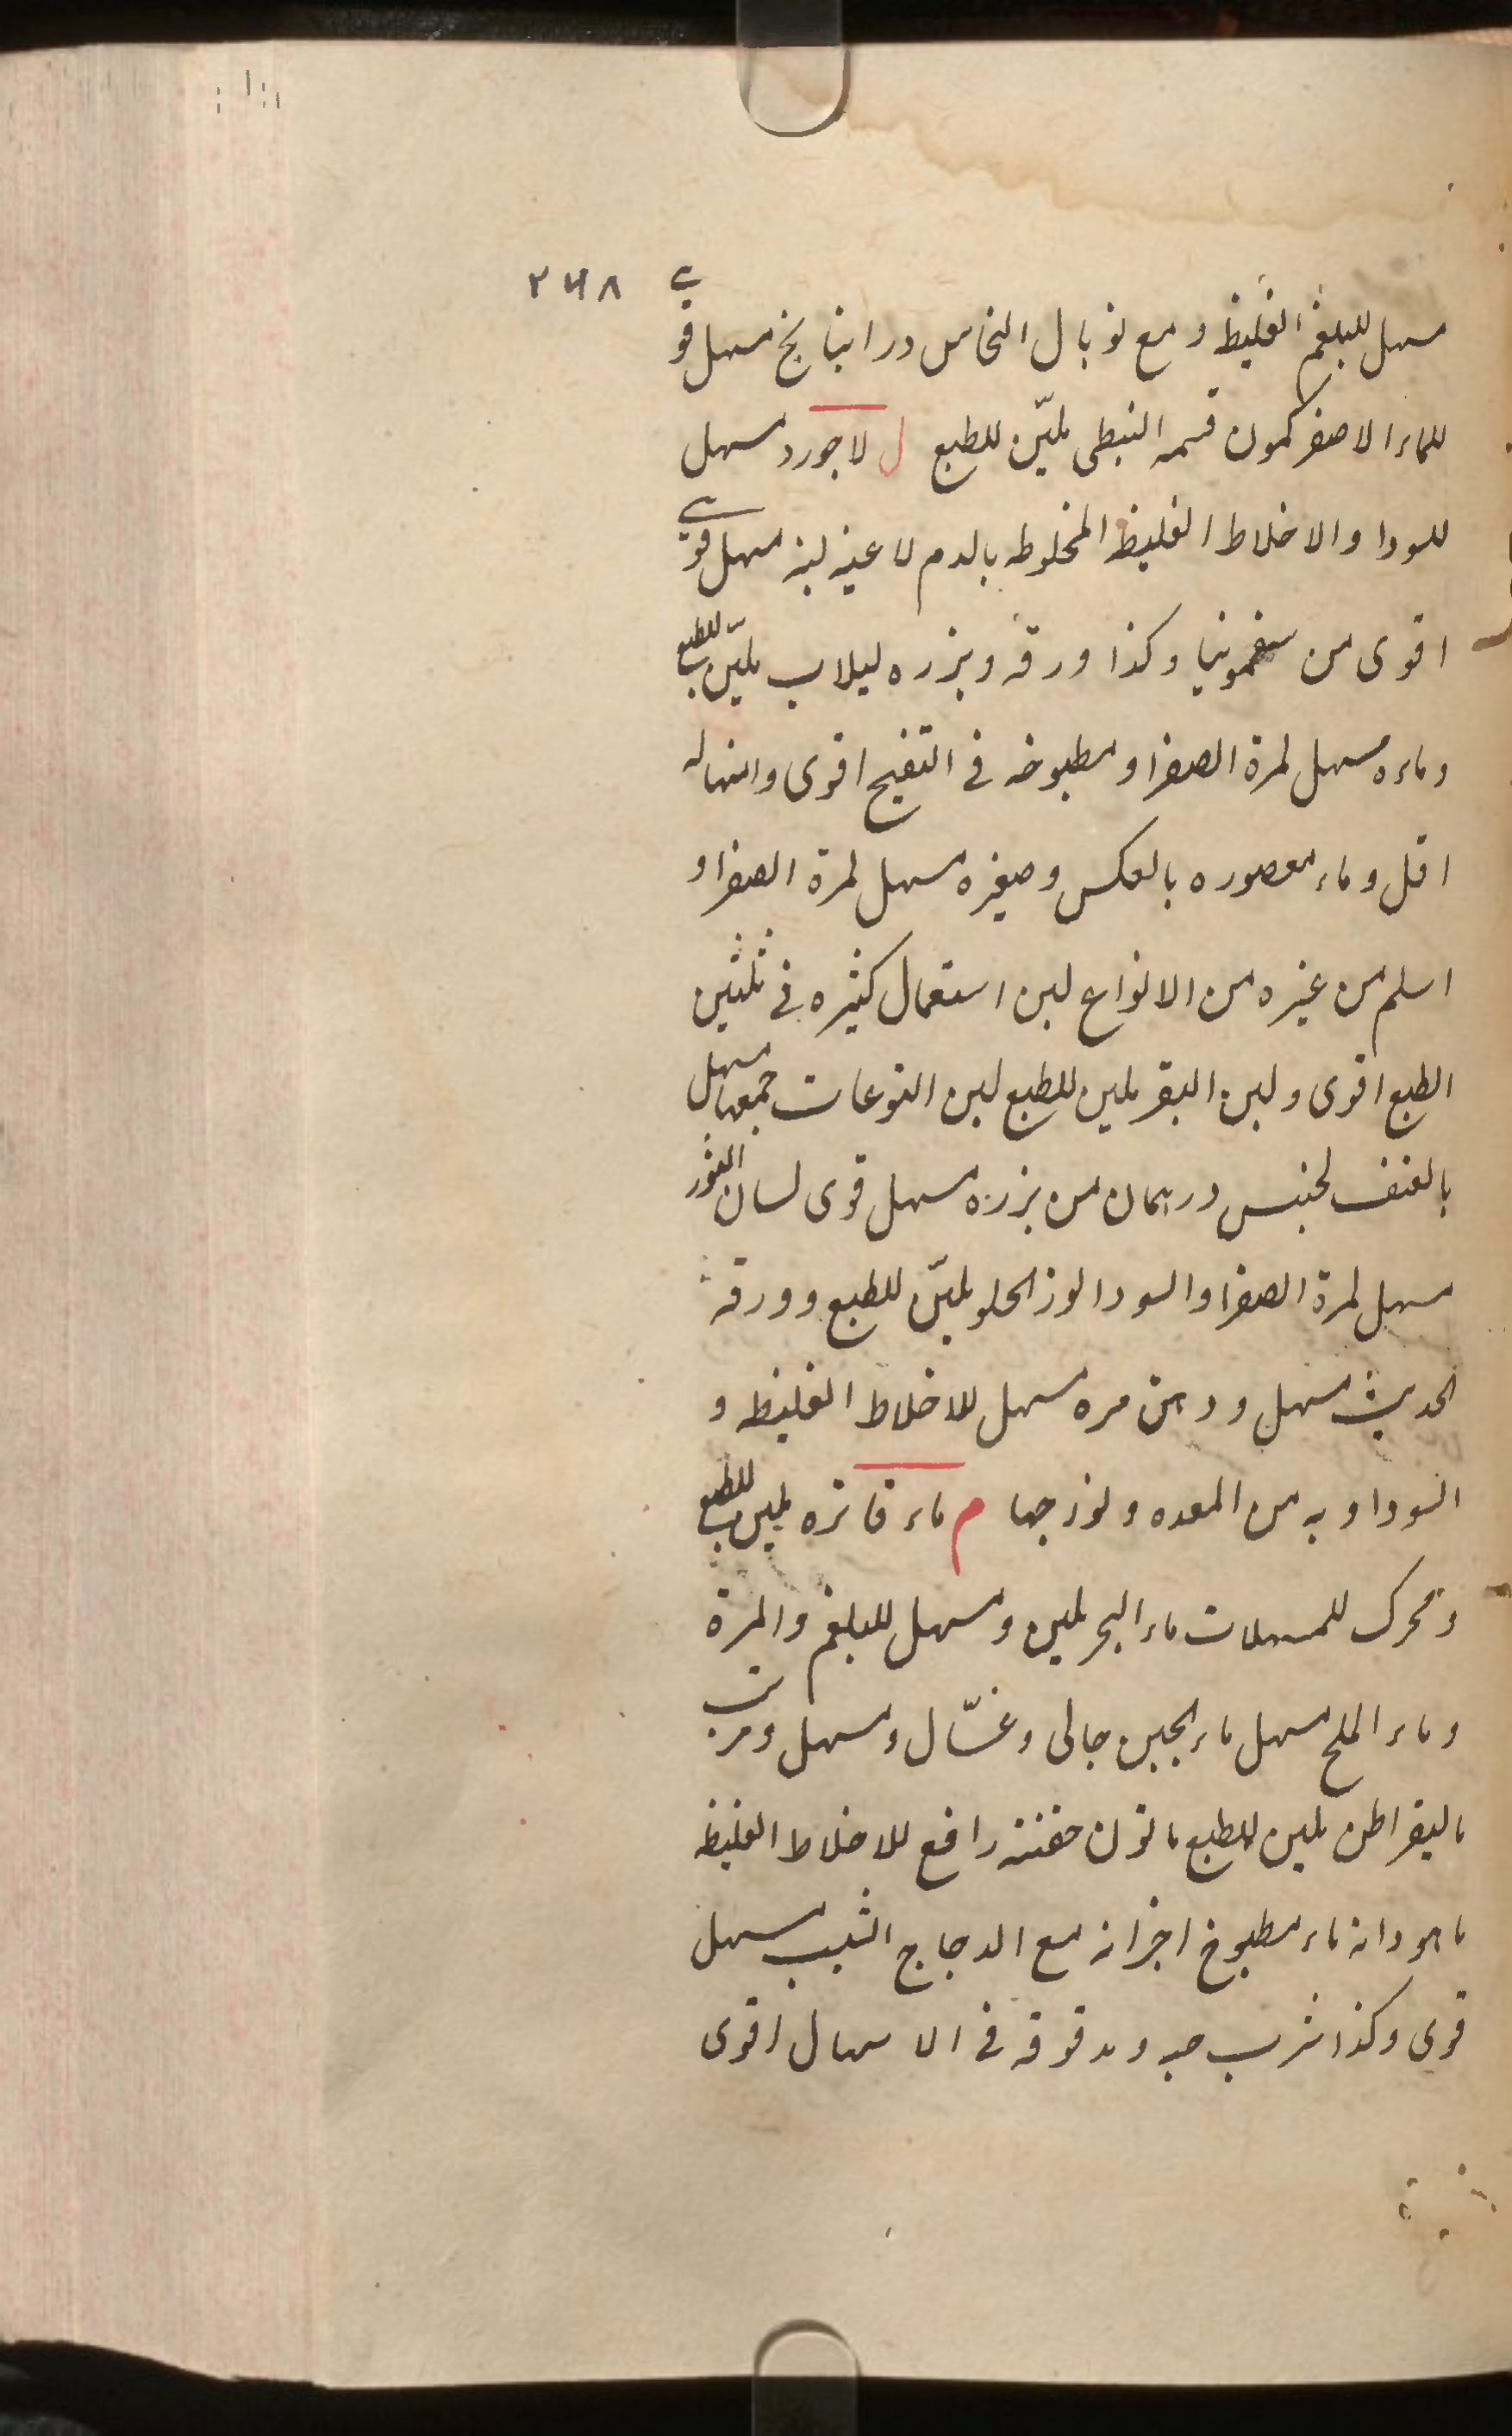 ٢٤٨
مسهل للبلغم الغليظ و مع توبال النحاس دراينا بخ مسهل قوي
للماء الاصفر كمون قسمه النبطى ملیّن للطبع ل لاجورد مسهل
للسودا والاخلاط الغليظ المخلوطه بالدم لاعيه لبنه مسهل قوي
اقوى من سقمونيا وكذا ورقه وبزره لبلاب ملیّن للطبع
وماءه مسهل لمرة الصفرا و مطبوخه فى التفيح اقوى واسهاله
اقل و ماء معصوره بالعكس و صغيره مسهل لمرة الصفرا و
اسلم من غيره من الانواع لبن استعمال كثيره فى تليين
الطبع اقوى و لبن البقر ملين للطبع لبن التوعات جمعها مسهل
بالعنف لحنيس درهمان من بزره مسهل قوى لسان الثور
مسهل لمرة الصفرا والسودا لوز الحلو ملیّن للطبع و ورقه
الحديث مسهل و دهن مره مسهل للاخلاط الغليظه و
السوداويه من المعده ولوزجها م ماء فاتره ملين للطبع
و محرك للمسهلات ماء البحر ملين و مسهل للبلغم والمرة
و ماء الملح مسهل ماء الجبن جالى و غسّال و مسهل و مرتب
مالیقراطن ملين للطبع مازن حقنته رافع للاخلاط الغليظه
ماهودانه ماء مطبوخ اجزائه مع الدجاج الشيب مسهل
قوى وكذا شرب حبه و مدقوقه فى الاسهال اقوى